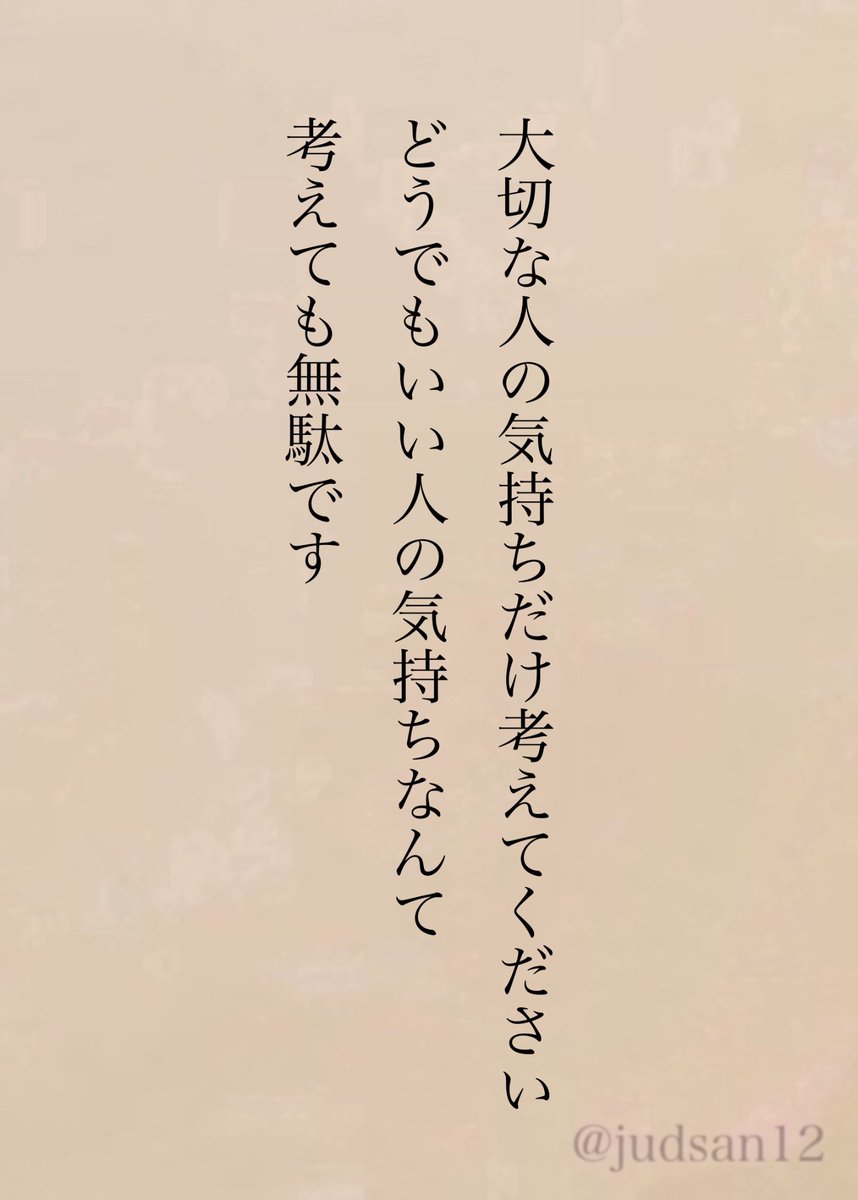 大切な人の気持ちだけ考えてください
どうでもいい人の気持ちなんて
考えても無駄です
@judsan12